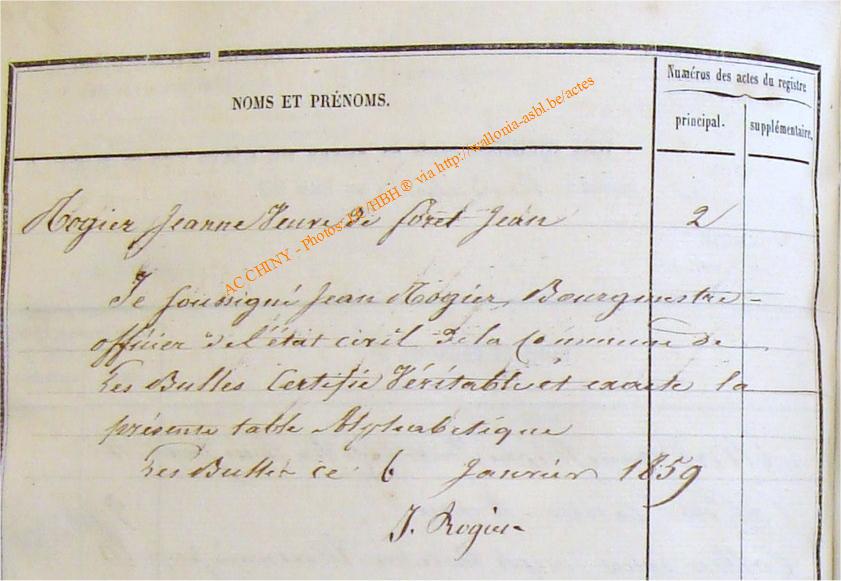 NOMS ET PRÉNOMS.
Numéros des actes du registre
principal.
supplémentaire,
AC CHINY - Photos /HBH ® via http://wallonia-asbl.be/actes
Rogier Jeanne Veuve de foret Jean 2
Je Soussigné Jean Rogier, Bourgmestre
officier de l'état civil de la Commune de
Les Bulles Certifie Véritable et exacte la
présente table Alphabétique
Les Bulles ce 6 Janvier 1859
J. Rogier